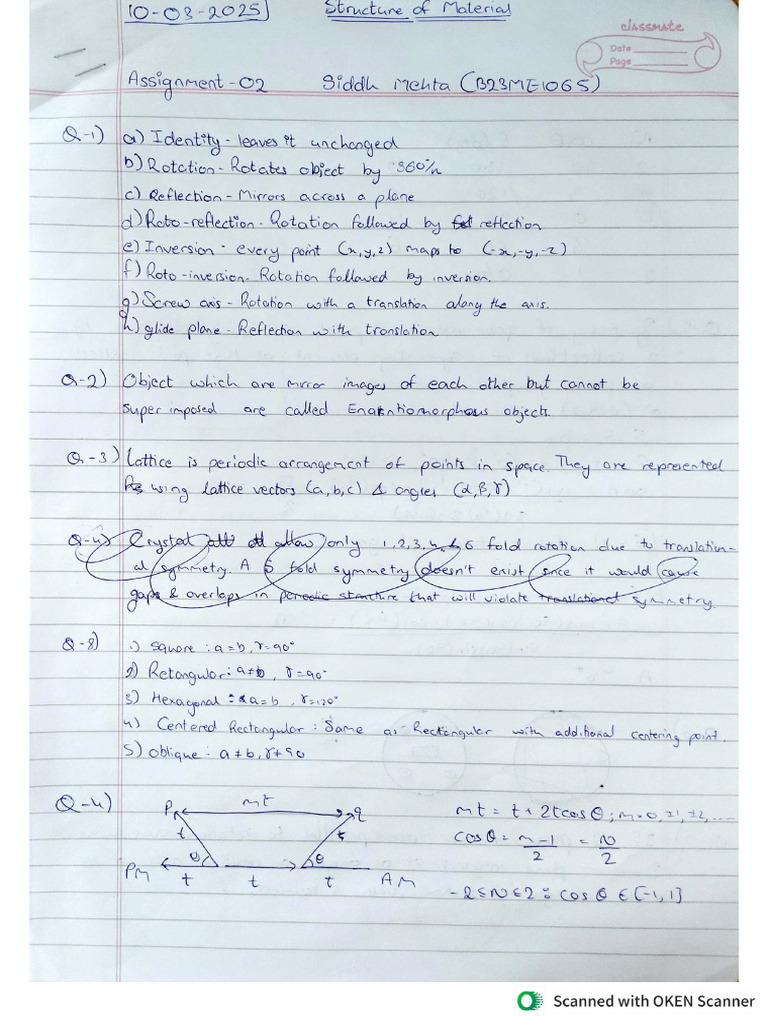 10-03-2025
Structure of Material
classmate
Date
Page
Assignment-02 Siddh Mehta (B23ME1065)
Q-1) a) Identity - leaves it unchanged
b) Rotation - Rotates object by 360°/n
c) Reflection - Mirrors across a plane
d) Roto-reflection - Rotation followed by reflection
e) Inversion - every point (x,y,z) maps to (-x,-y,-z)
f) Roto-inversion - Rotation followed by inversion.
g) Screw axis - Rotation with a translation along the axis.
h) glide plane - Reflection with translation
Q-2) Object which are mirror images of each other but cannot be
super imposed are called Enantiomorphous objects.
Q-3) Lattice is periodic arrangement of points in space. They are represented
using lattice vectors (a,b,c) & angles (α,β,γ)
Q-4) Crystal allow only 1,2,3,4,6 fold rotation due to translation-
al symmetry. A 5 fold symmetry doesn't exist since it would cause
gaps & overlaps in periodic structure that will violate translational symmetry.
Q-8) 1) square : a=b, γ=90°
2) Retangular : a≠b, γ=90°
3) Hexagonal : a=b, γ=120°
4) Centered Rectangular : Same as Rectangular with additional centering point.
5) oblique : a≠b, γ≠90
Q-4) P mt q mt = t + 2tcosθ ; m=0, ±1, ±2, ....
t t cosθ = m-1/2 = N/2
θ θ
PM t t t AM -2≤N≤2 ∵ cosθ ∈ [-1,1]
Scanned with OKEN Scanner